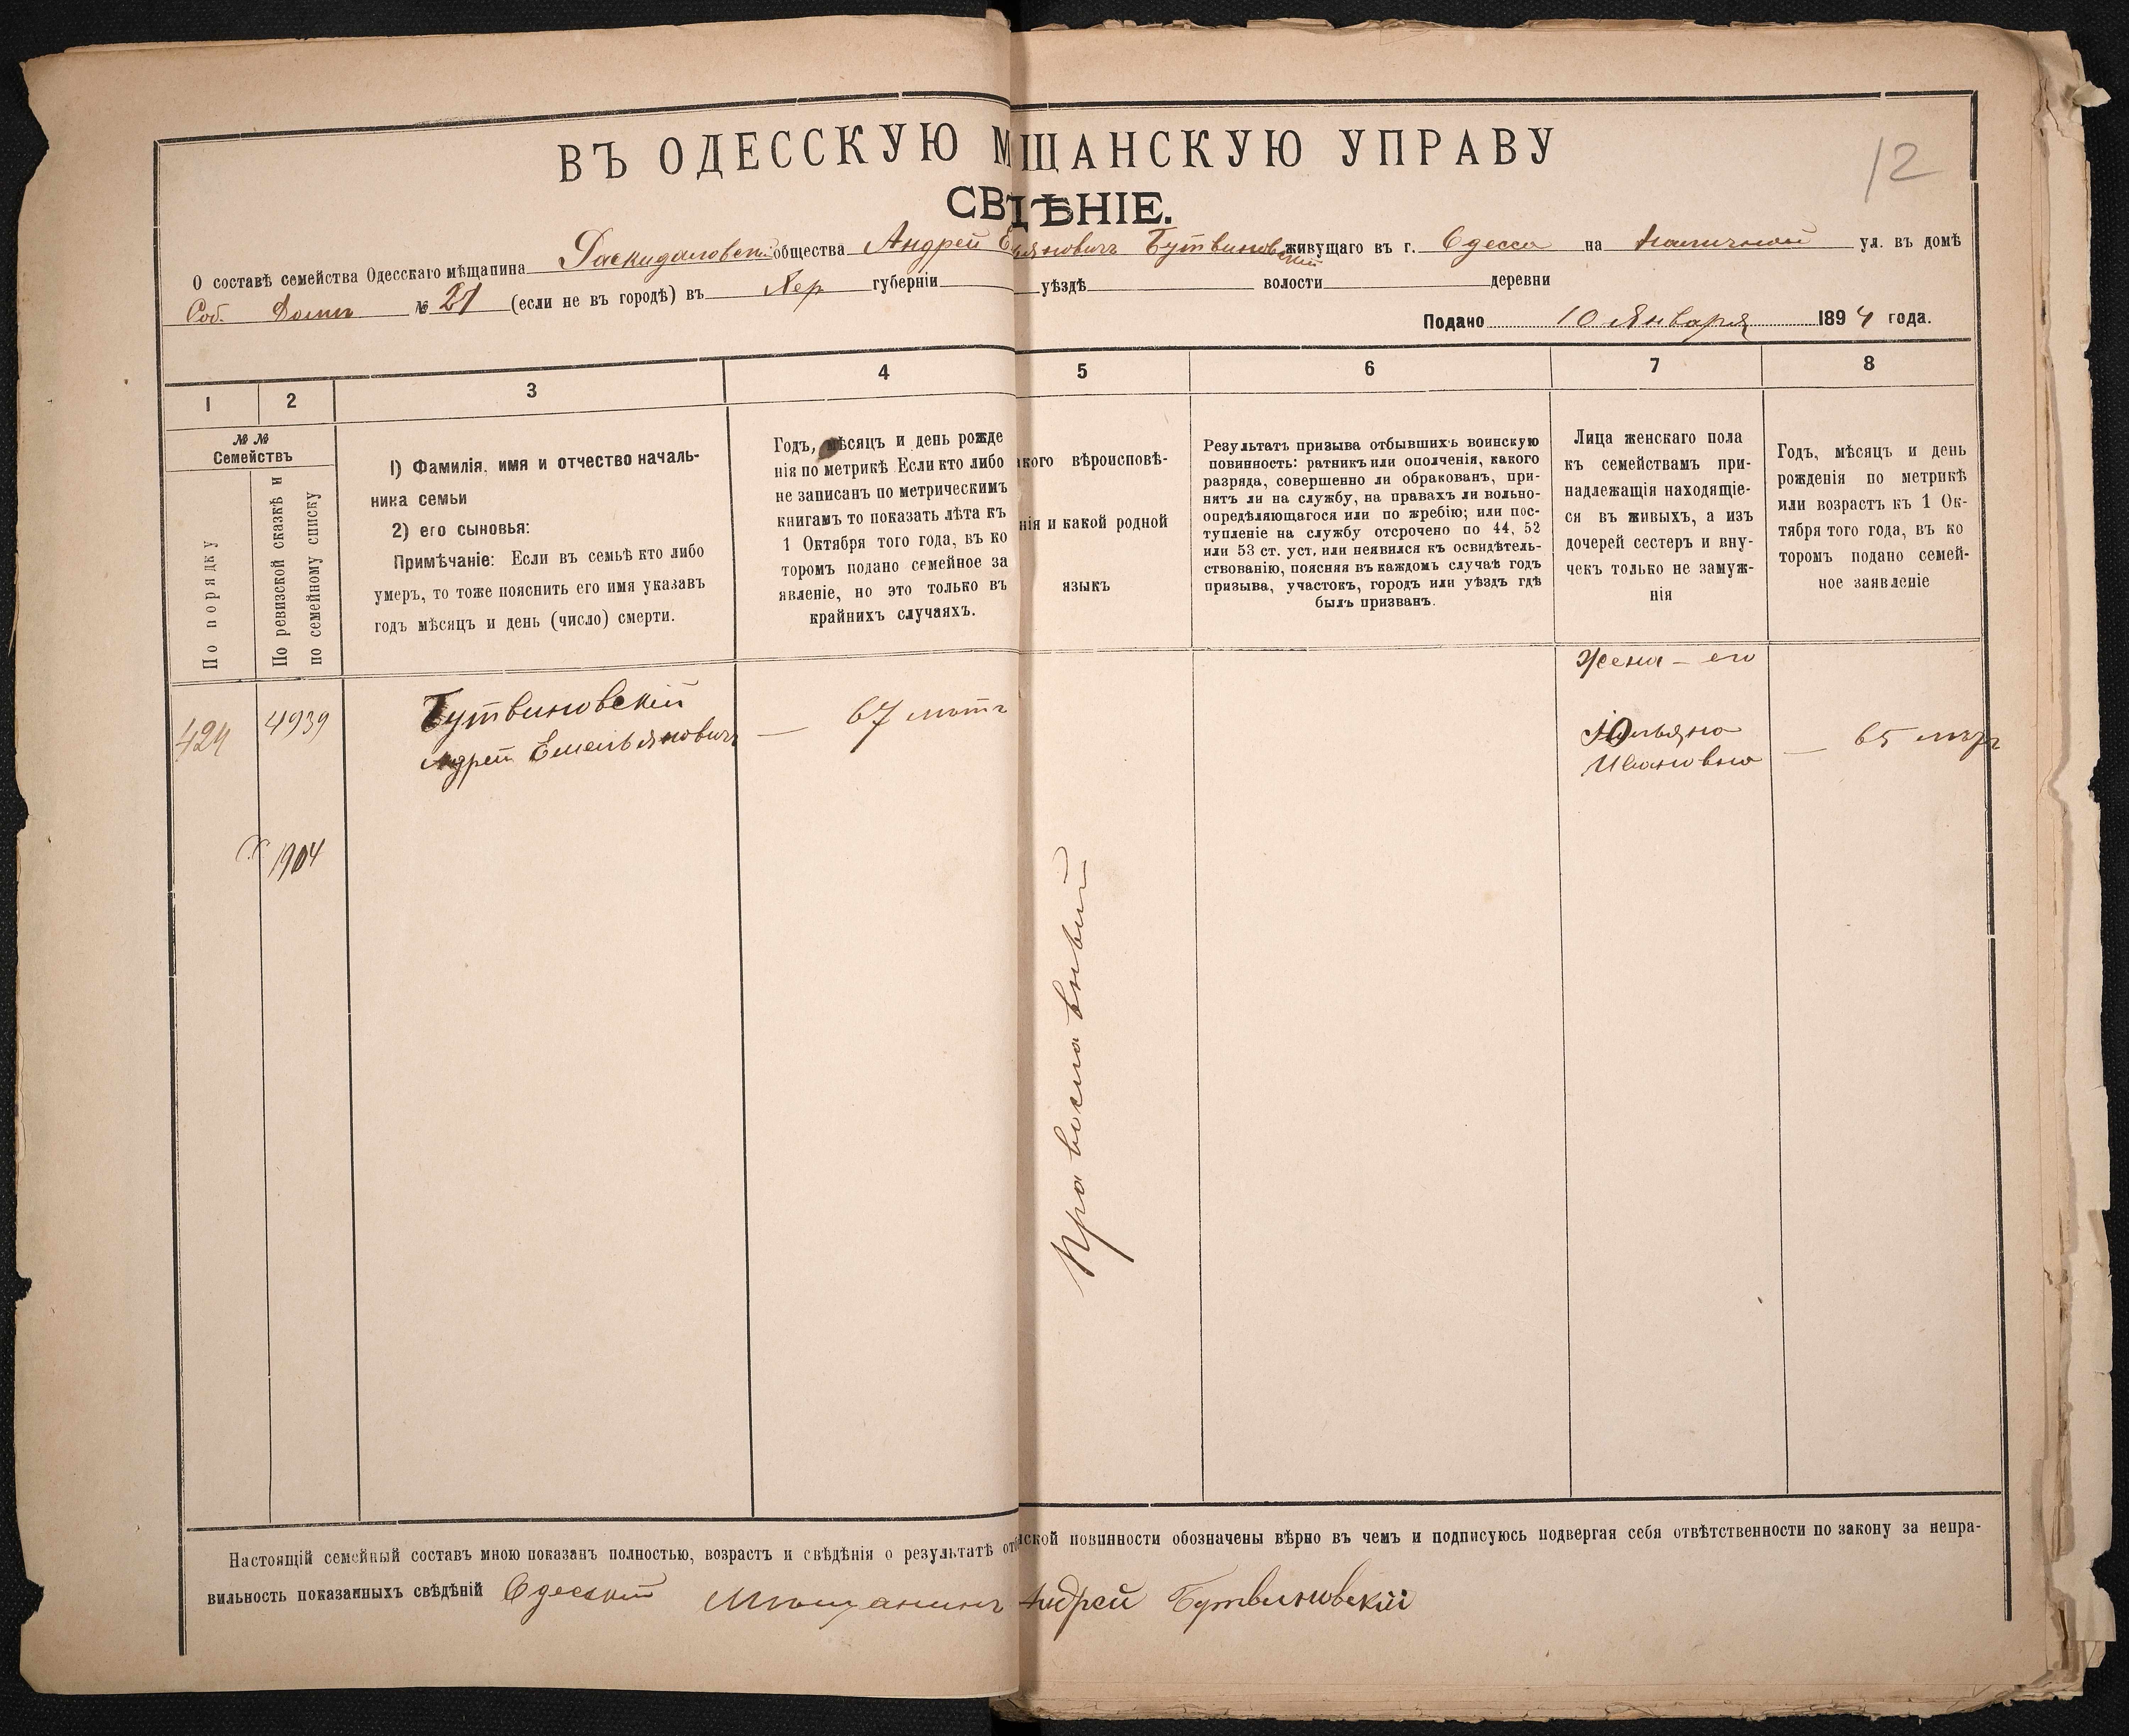 12
ВЪ ОДЕССКУЮ МЩАНСКУЮ УПРАВУ
СВѢДѢНІЕ.
О составѣ семейства Одесскаго мѣщанина Раскидаловск. общества Андрей Е ьяновичъ Бутвиновскій живущаго въ г. Одесса на ул. въ домѣ
Соб. Домъ № 21 (если не въ городѣ) въ Хер губерніи уѣздѣ волости деревни
Подано 10 Января 1894 года.
1 2 3 4 5 6 7 8
№ №
Семействъ
По порядку
По ревизской сказкѣ и
по семейному списку
1) Фамилія, имя и отчество началь-
ника семьи
2) его сыновья:
Примѣчаніе: Если въ семьѣ кто либо
умеръ, то тоже пояснить его имя указавъ
годъ мѣсяцъ и день (число) смерти.
Годъ, мѣсяцъ и день рожде
нія по метрикѣ Если кто либо
не записанъ по метрическимъ
книгамъ то показать лѣта къ
1 Октября того года, въ ко
торомъ подано семейное за
явленіе, но это только въ
крайнихъ случаяхъ.
кого вѣроисповѣ-
нія и какой родной
языкъ
Результатъ призыва отбывшихъ воинскую
повинность: ратникъ или ополченія, какого
разряда, совершенно ли обракованъ, при-
нятъ ли на службу, на правахъ ли вольно-
опредѣляющагося или по жребію; или пос-
тупленіе на службу отсрочено по 44, 52
или 53 ст. уст, или неявился къ освидѣтель-
ствованію, поясняя въ каждомъ случаѣ годъ
призыва, участокъ, городъ или уѣздъ гдѣ
былъ призванъ.
Лица женскаго пола
къ семействамъ при-
надлежащія находящіе-
ся въ живыхъ, а изъ
дочерей сестеръ и вну-
чекъ только не замуж-
нія
Годъ, мѣсяцъ и день
рожденія по метрикѣ
или возрастъ къ 1 Ок-
тября того года, въ ко
торомъ подано семей-
ное заявленіе
Жена - его
424 4939 Бутвиновскій — 67 лѣтъ
Андрей Емельяновичъ
Юльяна — 65 лѣтъ
Ивановна
1904
Православный
Настоящій семейный составъ мною показанъ полностью, возрастъ и свѣдѣнія о результатѣ от ской повинности обозначены вѣрно въ чемъ и подписуюсь подвергая себя отвѣтственности по закону за непра-
вильность показанныхъ свѣдѣній Одесскій Мѣщанинъ Андрей Бутвиновскій